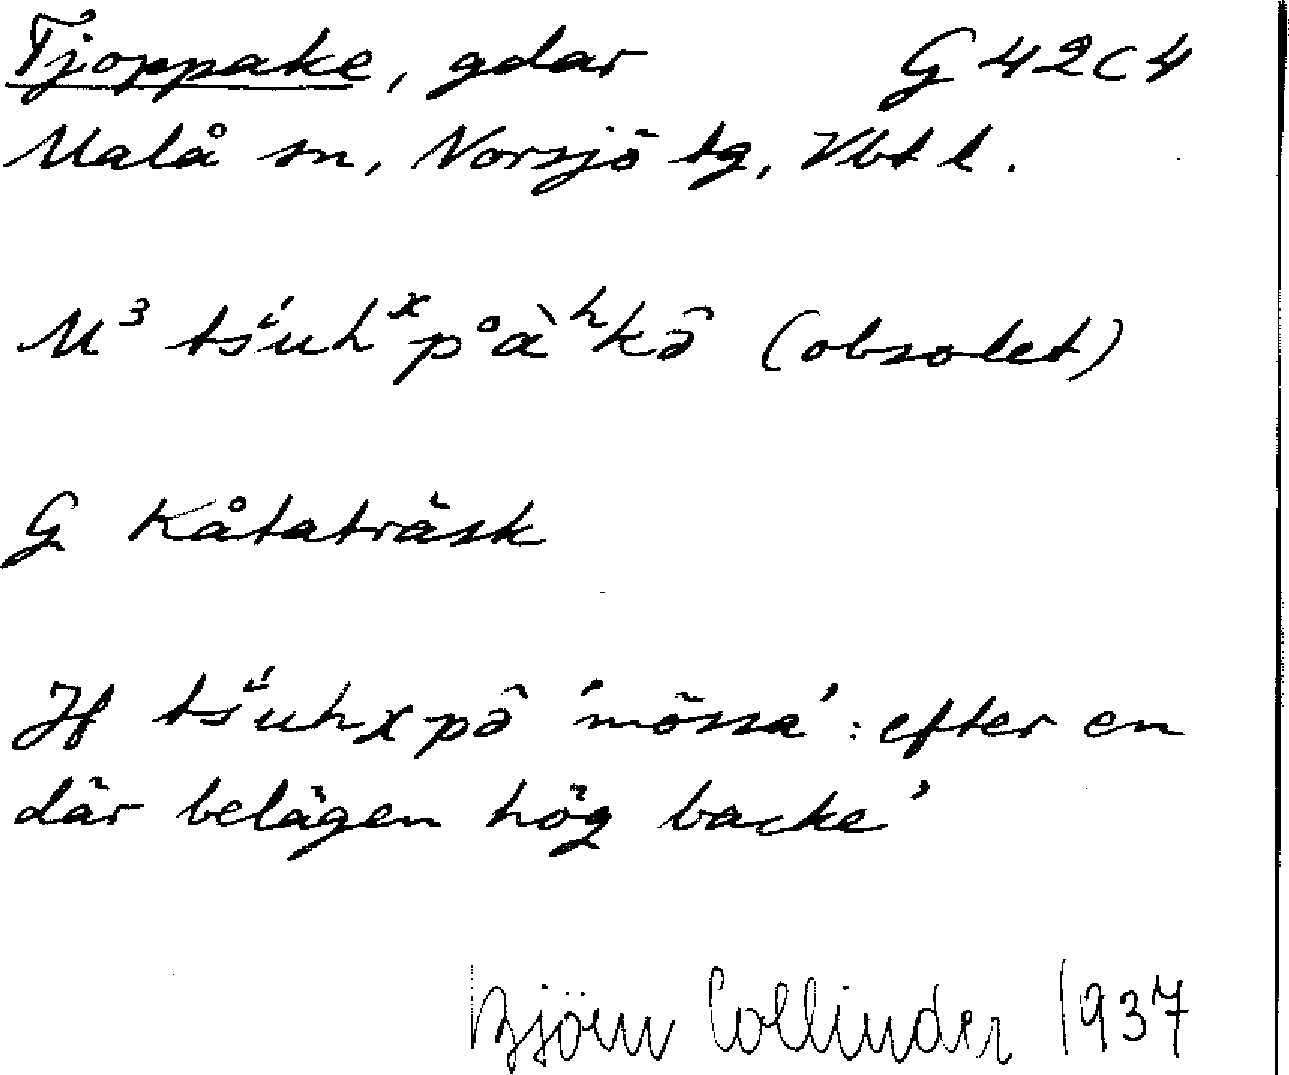 Tjoppake, gdar G 42c4
Malå sn, Norsjö tg, Vbt l.
M³ tśuhˣp°àʰkə̂ (obsolet)
G Kåtaträsk
H tśuhxpə̂ 'mössa': efter en
där belägen hög backe'
Björn Collinder 1937